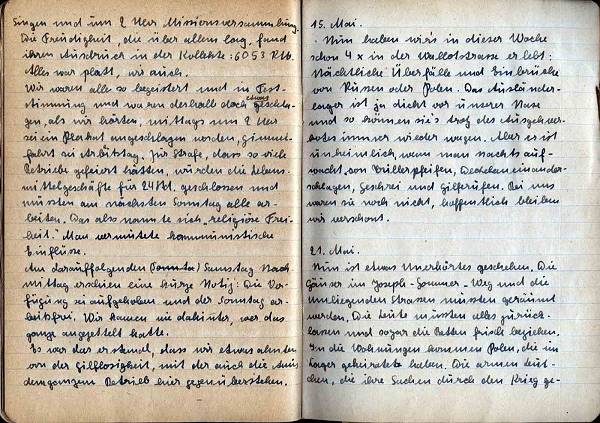 Singen und um 2 Uhr Missionsversammlung.
Die Freudigkeit, die über allem lag, fand
ihren Ausdruck in der Kollekte: 6053 RM.
Alles war platt, wir auch.
Wir waren alle so begeistert und in Fest-
stimmung und waren deshalb doch etwas geschla-
gen, als wir hörten, mittags um 2 Uhr
sei ein Plakat angeschlagen worden, Himmel-
fahrt sei Arbeitstag. Zur Strafe, dass so viele
Betriebe gefeiert hätten, würden die Lebens-
mittelgeschäfte für 24 Std. geschlossen und
müssten am nächsten Sonntag alle ar-
beiten. Das also nannte sich „religiöse Frei-
heit." Man vermutete kommunistische
Einflüsse.
Am darauffolgenden (Sonnta) Samstag Nach-
mittag erschien eine kurze Notiz: Die Ver-
fügung sei aufgehoben und der Sonntag ar-
beitsfrei. Wir kamen nie dahinter, wer das
ganze angezettelt hatte.
Es war das erstemal, dass wir etwas ahnten
von der Hilflosigkeit, mit der auch die Amis
dem ganzen Betrieb hier gegenüberstehen.
15. Mai.
Nun haben wir's in dieser Woche
schon 4 x in der Wallotstrasse erlebt:
Nächtliche Überfälle und Einbrüche
von Russen oder Polen. Das Ausländer-
lager ist ja dicht vor unserer Nase
und so können sie's trotz des Ausgehver-
botes immer wieder wagen. Aber es ist
unheimlich, wenn man nachts auf-
wacht von Trillerpfeifen, Deckelaneinander-
schlagen, Geschrei und Hilferufen. Bei uns
waren sie noch nicht, hoffentlich bleiben
wir verschont.
21. Mai.
Nun ist etwas Unerhörtes geschehen. Die
Häuser im Joseph-Sommer-Weg und die
umliegenden Strassen mussten geräumt
werden. Die Leute mussten alles zurück-
lassen und sogar die Betten frisch beziehen.
In die Wohnungen kommen Polen, die im
Lager geheiratet haben. Die armen Leut-
chen, die ihre Sachen durch den Krieg ge-